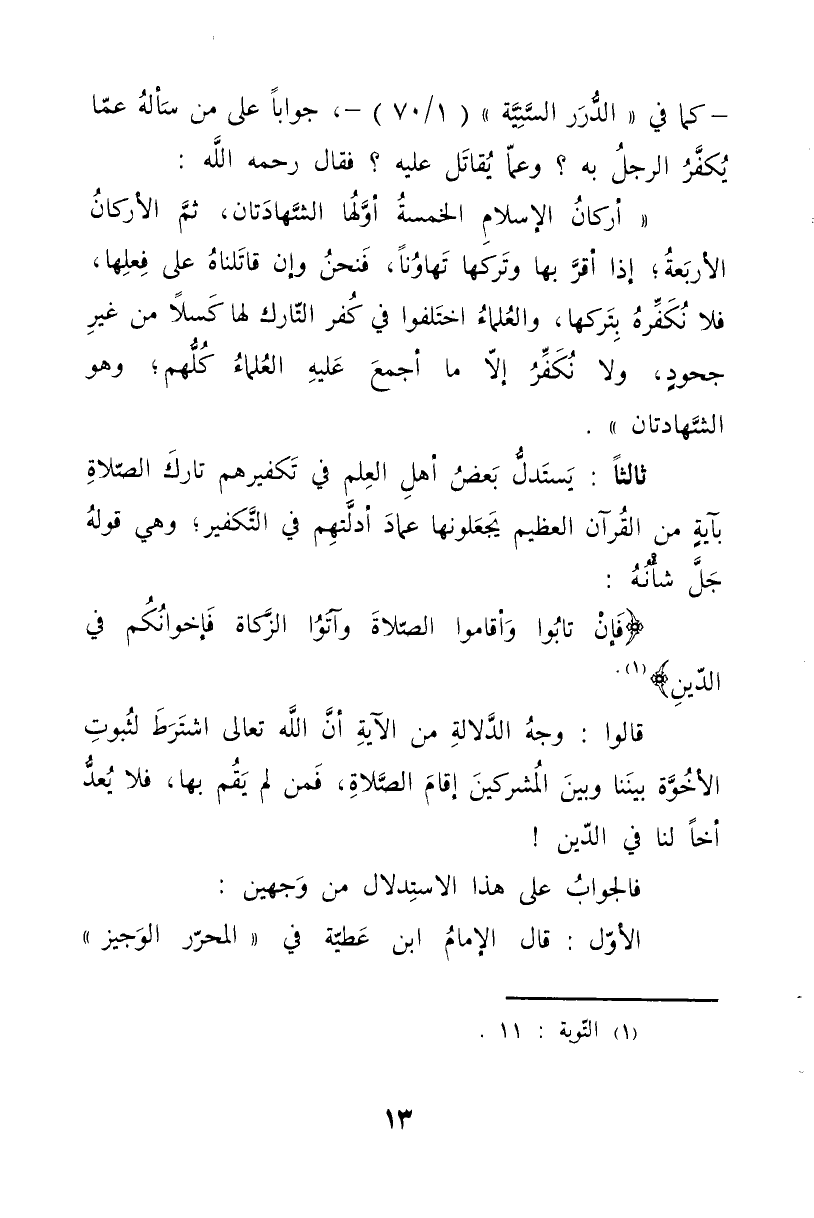 – كما في « الدُّرَر السَّنِيَّة » ( ٧٠/١ ) –، جواباً على من سَألهُ عمّا
يُكفَّرُ الرجلُ به ؟ وعمّا يُقاتَل عليه ؟ فقال رحمه اللَّه :
« أركانُ الإسلامِ الخمسةُ أوَّلُها الشَّهادَتان، ثمَّ الأركانُ
الأربَعةُ؛ إذا أقرَّ بها وتَركها تَهاوُناً، فَنحنُ وإن قاتَلناهُ على فِعلِها،
فلا نُكَفِّرهُ بِتَركها، والعُلماءُ اختَلفوا في كُفر التّارك لها كَسلاً من غيرِ
جحودٍ، ولا نُكَفِّرُ إلاّ ما أجمعَ عَليهِ العُلماءُ كُلُّهم؛ وهو
الشَّهادتان » .
ثالثاً : يَستَدلُّ بَعضُ أهلِ العِلم في تَكفيرهم تاركَ الصّلاةِ
بآيةٍ من القُرآن العظيم يَجَعَلونها عمادَ أدلَّتهِم في التَّكفير؛ وهي قولهُ
جَلَّ شأنُهُ :
﴿فَإنْ تابُوا وَأقاموا الصّلاةَ وآتَوُا الزَّكاة فَإخوانُكُم في
الدّينِ﴾(١).
قالوا : وجهُ الدَّلالةِ من الآيةِ أنَّ اللَّه تعالى اشتَرَطَ لثُبوتِ
الأخُوَّة بينَنا وبينَ المُشركينَ إقامَ الصَّلاةِ، فَمن لم يَقُم بها، فلا يُعدُّ
أخاً لنا في الدّين !
فالجوابُ على هذا الاستِدلال من وَجهين :
الأوّل : قال الإمامُ ابن عَطيّة في « المحرّر الوَجيز »
(١) التّوبة : ١١ .
١٣